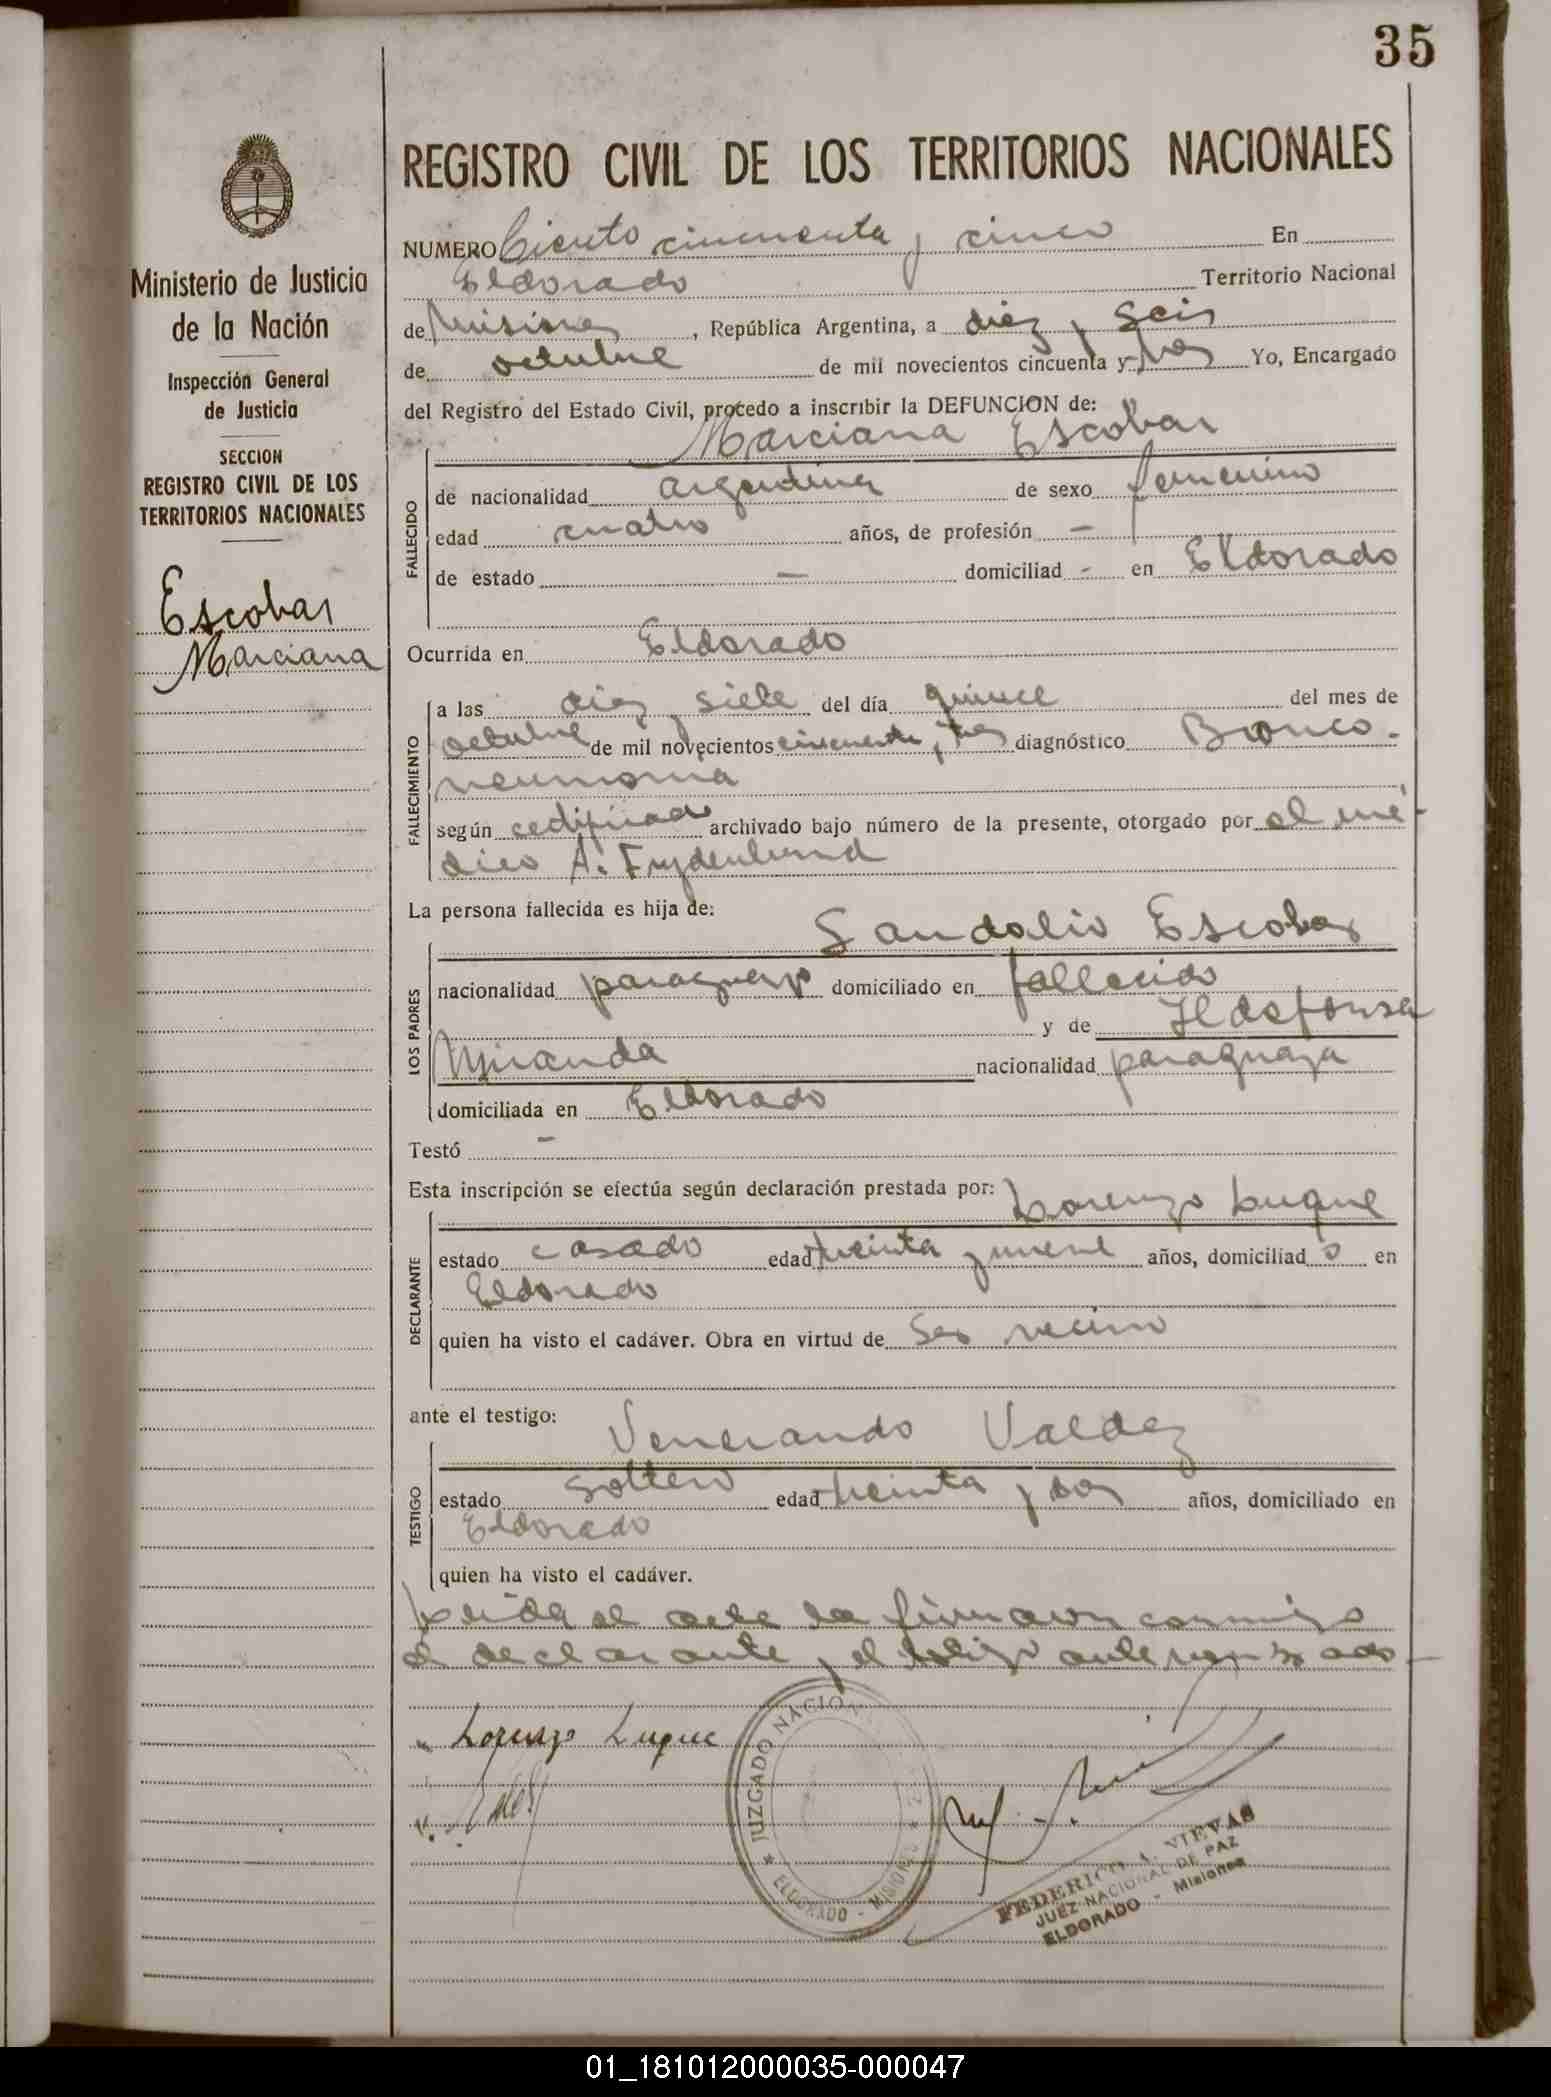 35
REGISTRO CIVIL DE LOS TERRITORIOS NACIONALES
Ministerio de Justicia
de la Nación
Inspección General
de Justicia
SECCION
REGISTRO CIVIL DE LOS
TERRITORIOS NACIONALES
Escobar
Marciana
NUMERO Ciento cincuenta y cinco En
Eldorado Territorio Nacional
de Misiones, República Argentina, a diez y seis
de octubre de mil novecientos cincuenta y tres Yo, Encargado
del Registro del Estado Civil, procedo a inscribir la DEFUNCION de:
Marciana Escobar
FALLECIDO
de nacionalidad argentina de sexo femenino
edad cuatro años, de profesión -
de estado - domiciliad - en Eldorado
Ocurrida en Eldorado
FALLECIMIENTO
a las diez y siete del día quince del mes de
octubre de mil novecientos cincuenta y tres diagnóstico Bronco-
neumonia
según certificado archivado bajo número de la presente, otorgado por el mé-
dico A. Frydenlund
La persona fallecida es hija de:
LOS PADRES
Sandalio Escobar
nacionalidad paraguayo domiciliado en fallecido
y de Ildefonsa
Miranda nacionalidad paraguaya
domiciliada en Eldorado
Testó -
Esta inscripción se efectúa según declaración prestada por:
DECLARANTE
Lorenzo Luque
estado casado edad treinta y nueve años, domiciliad o en
Eldorado
quien ha visto el cadáver. Obra en virtud de ser vecino
ante el testigo:
TESTIGO
Venerando Valdez
estado soltero edad treinta y dos años, domiciliado en
Eldorado
quien ha visto el cadáver.
Leída el acta la firmaron conmigo
el declarante y el testigo antes
Lorenzo Luque
JUZGADO NACIONAL DE PAZ
ELDORADO - MISIONES
FEDERICO A. NIEVAS
JUEZ NACIONAL DE PAZ
ELDORADO - Misiones
01_181012000035-000047